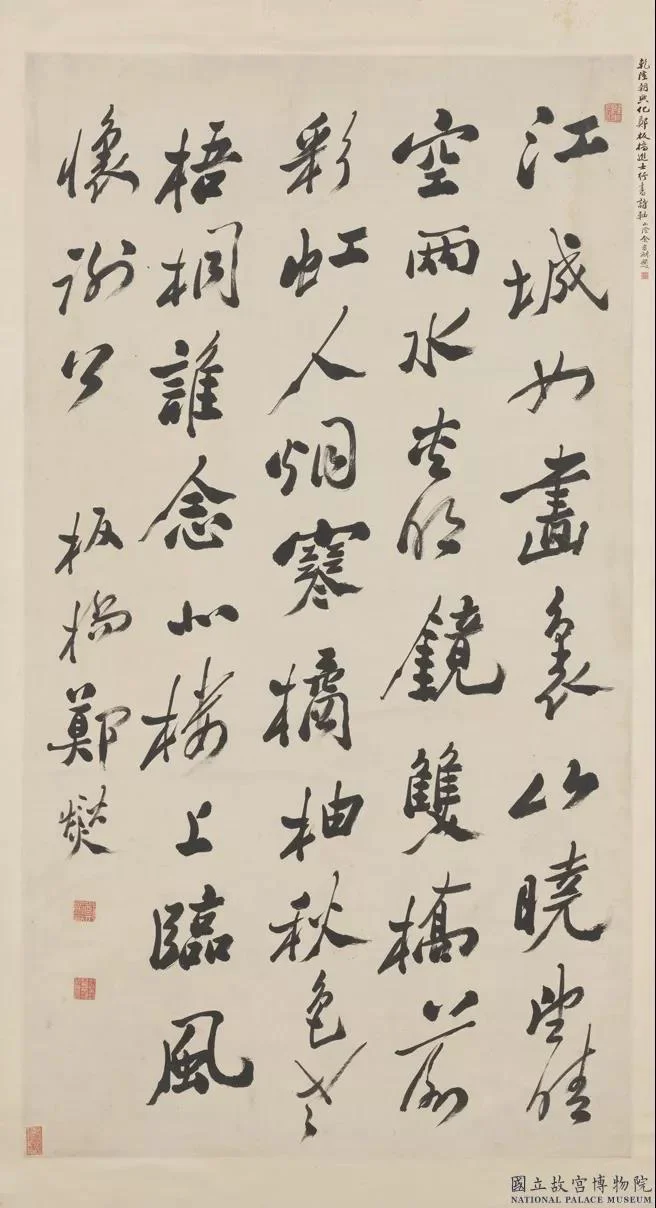 乾隆朝興化鄭板橋進士行書詩軸 山陰金
江城如畫裏山曉望晴
空兩水夾明鏡雙橋落
彩虹人烟寒橘柚秋色老
梧桐誰念北楼上臨風
懷謝公 板橋鄭燮
國立故宮博物院
NATIONAL PALACE MUSEUM